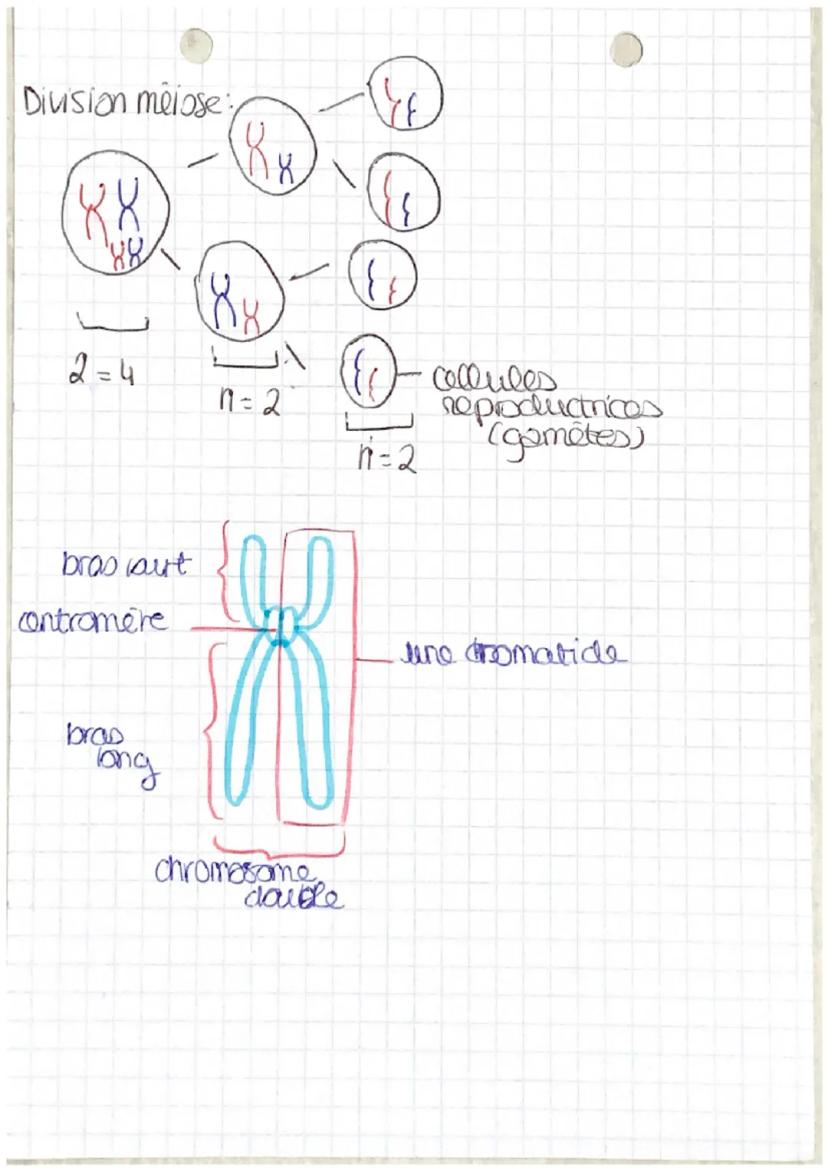 Division méiose:
2 = 4
n = 2
n = 2
cellules
reproductrices
(gamètes)
bras court
centromère
une chromatide
bras
long
chromosome
double